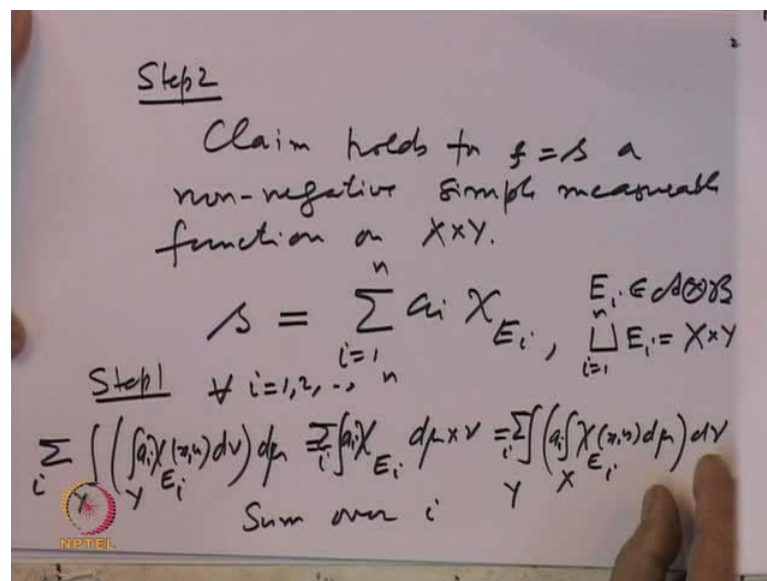 2
Step 2
Claim holds for f = s a
non-negative simple measurable
function on X×Y.
s = ∑_{i=1}^{n} a_i χ_{E_i}, E_i ∈ A⊗B
⊔_{i=1}^{n} E_i = X×Y
Step 1 ∀ i=1,2,.., n
∑_i ∫_X (∫_Y a_i χ_{E_i}(x,y) dν) dμ = ∑_i ∫ a_i χ_{E_i} dμ×ν = ∑_i ∫_Y (a_i ∫_X χ_{E_i}(x,y) dμ) dν
Sum over i
NPTEL